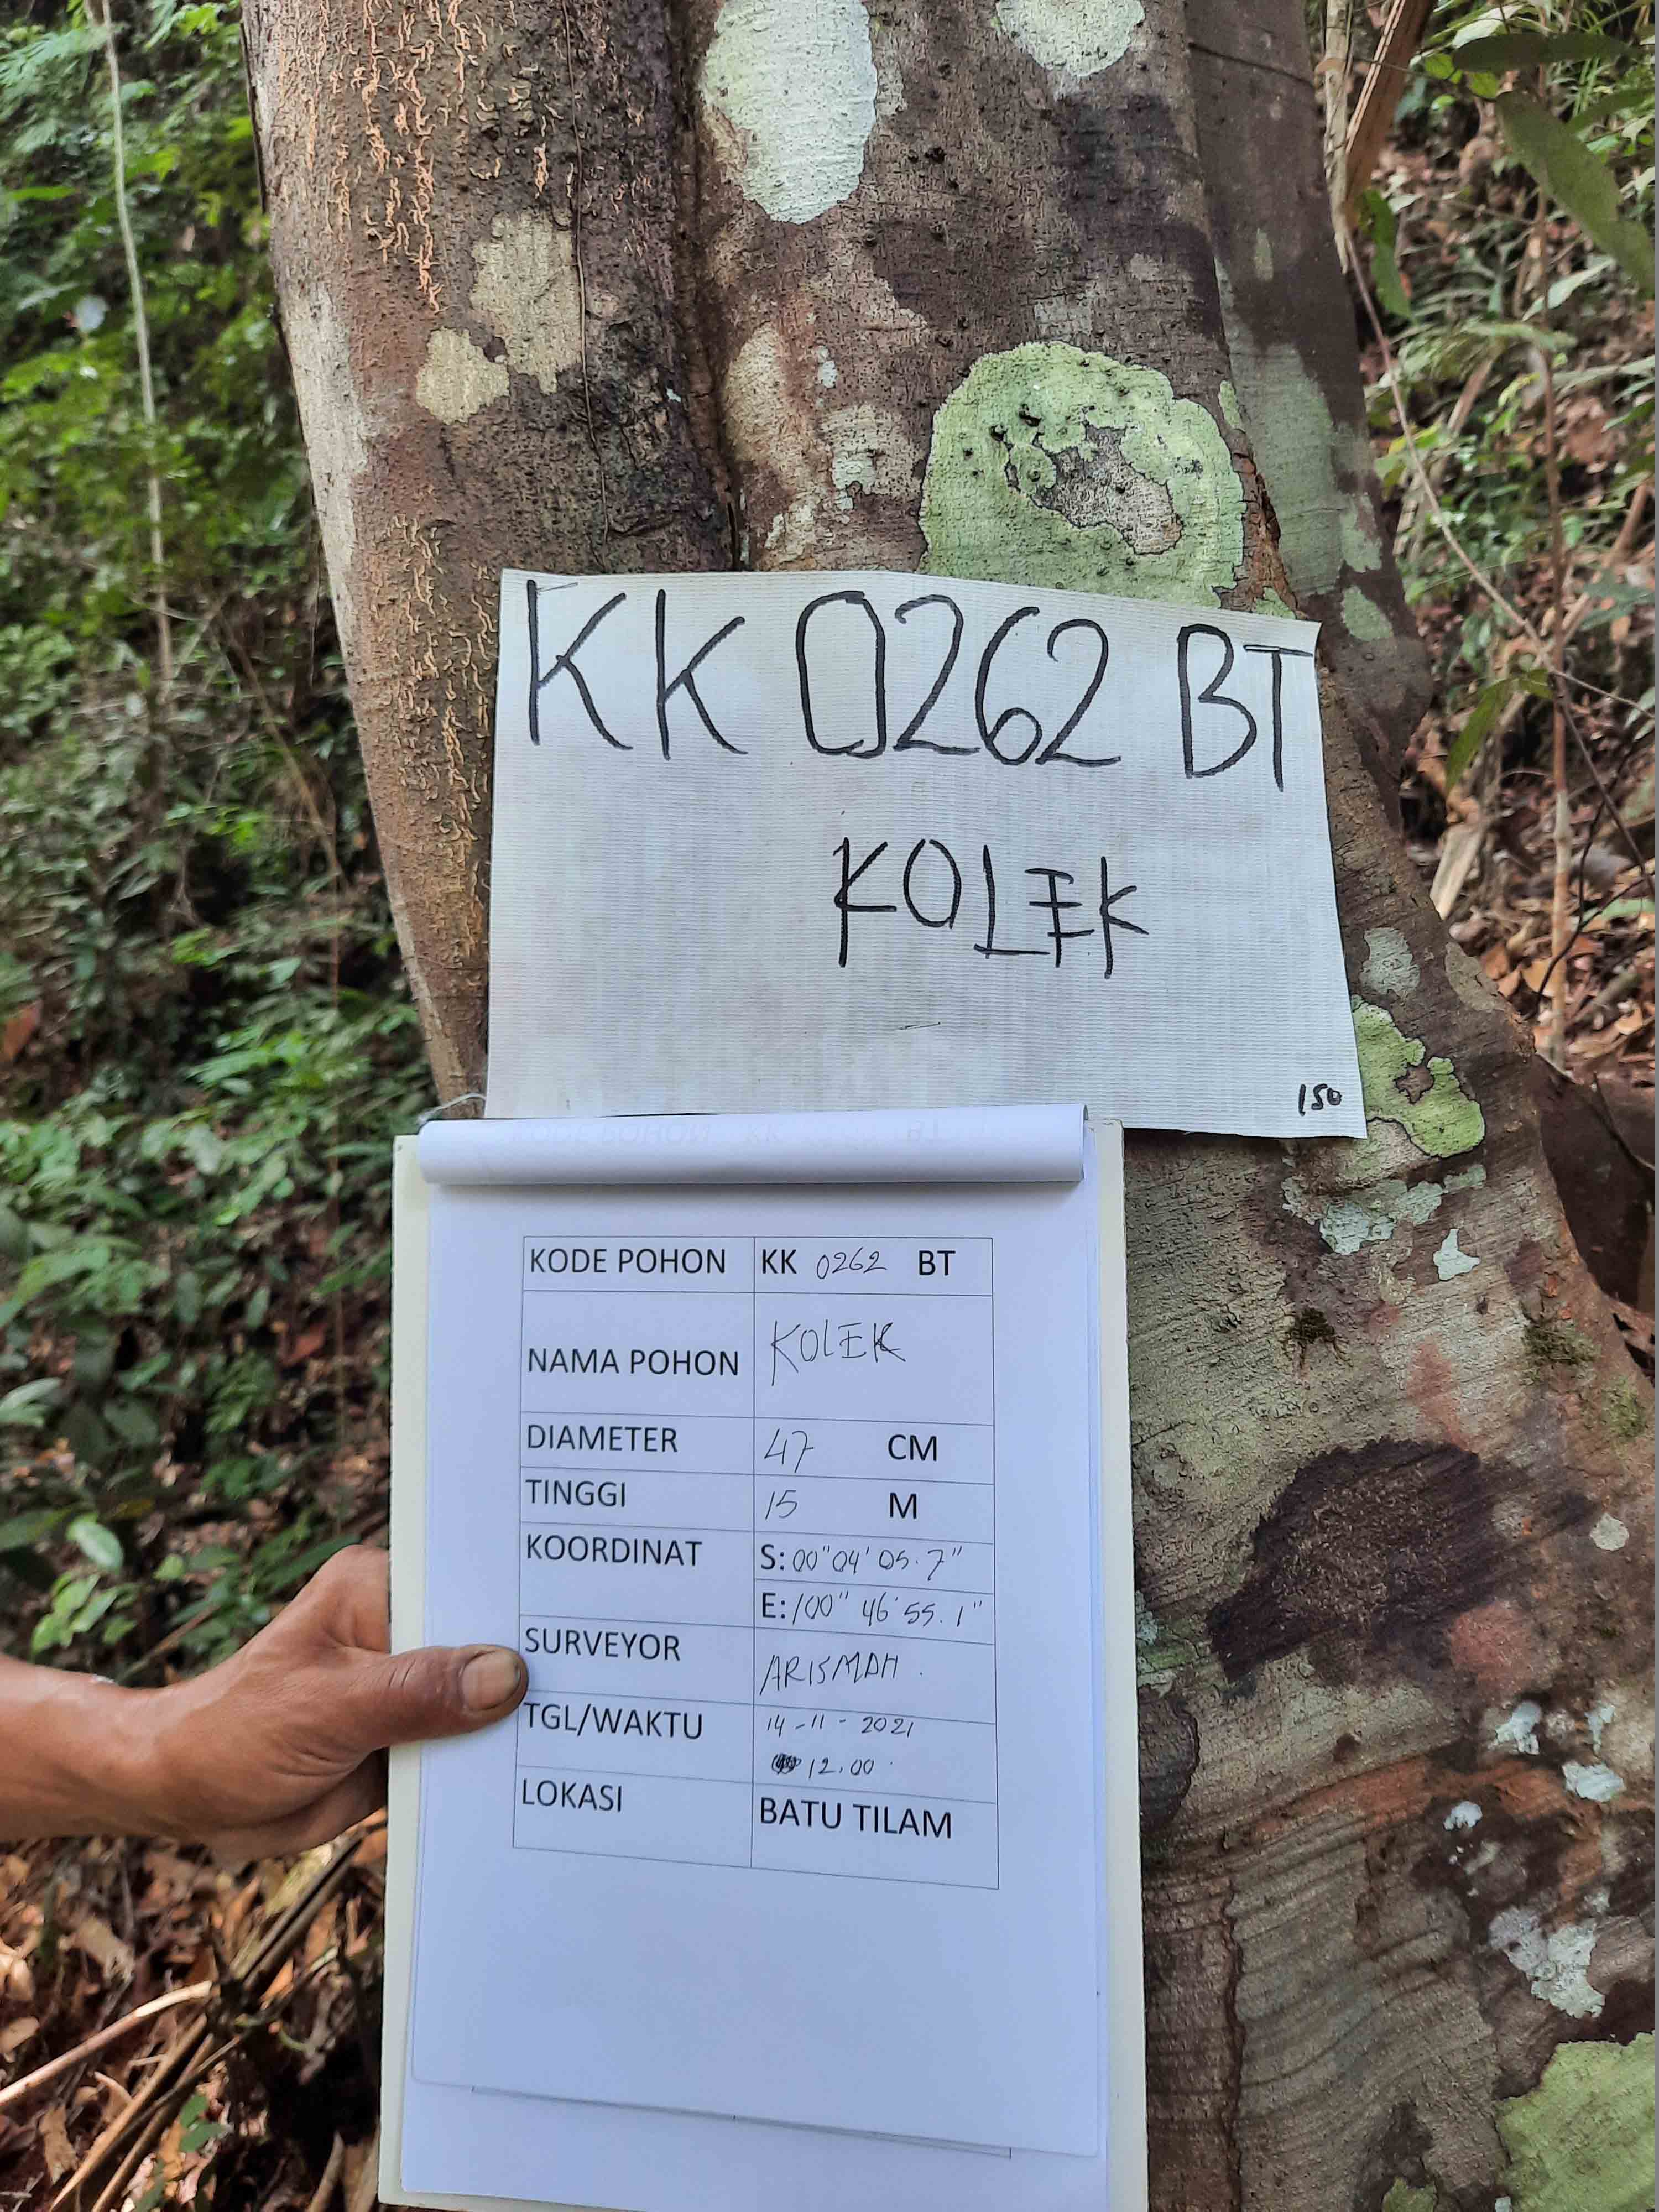 KK 0262 BT
KOLEK
150
KODE POHON KK 0262 BT
NAMA POHON KOLEK
DIAMETER 47 CM
TINGGI 15 M
KOORDINAT S: 00" 04' 05.7"
E: 100" 46' 55.1"
SURVEYOR ARISMAN.
TGL/WAKTU 14-11-2021
12.00
LOKASI BATU TILAM